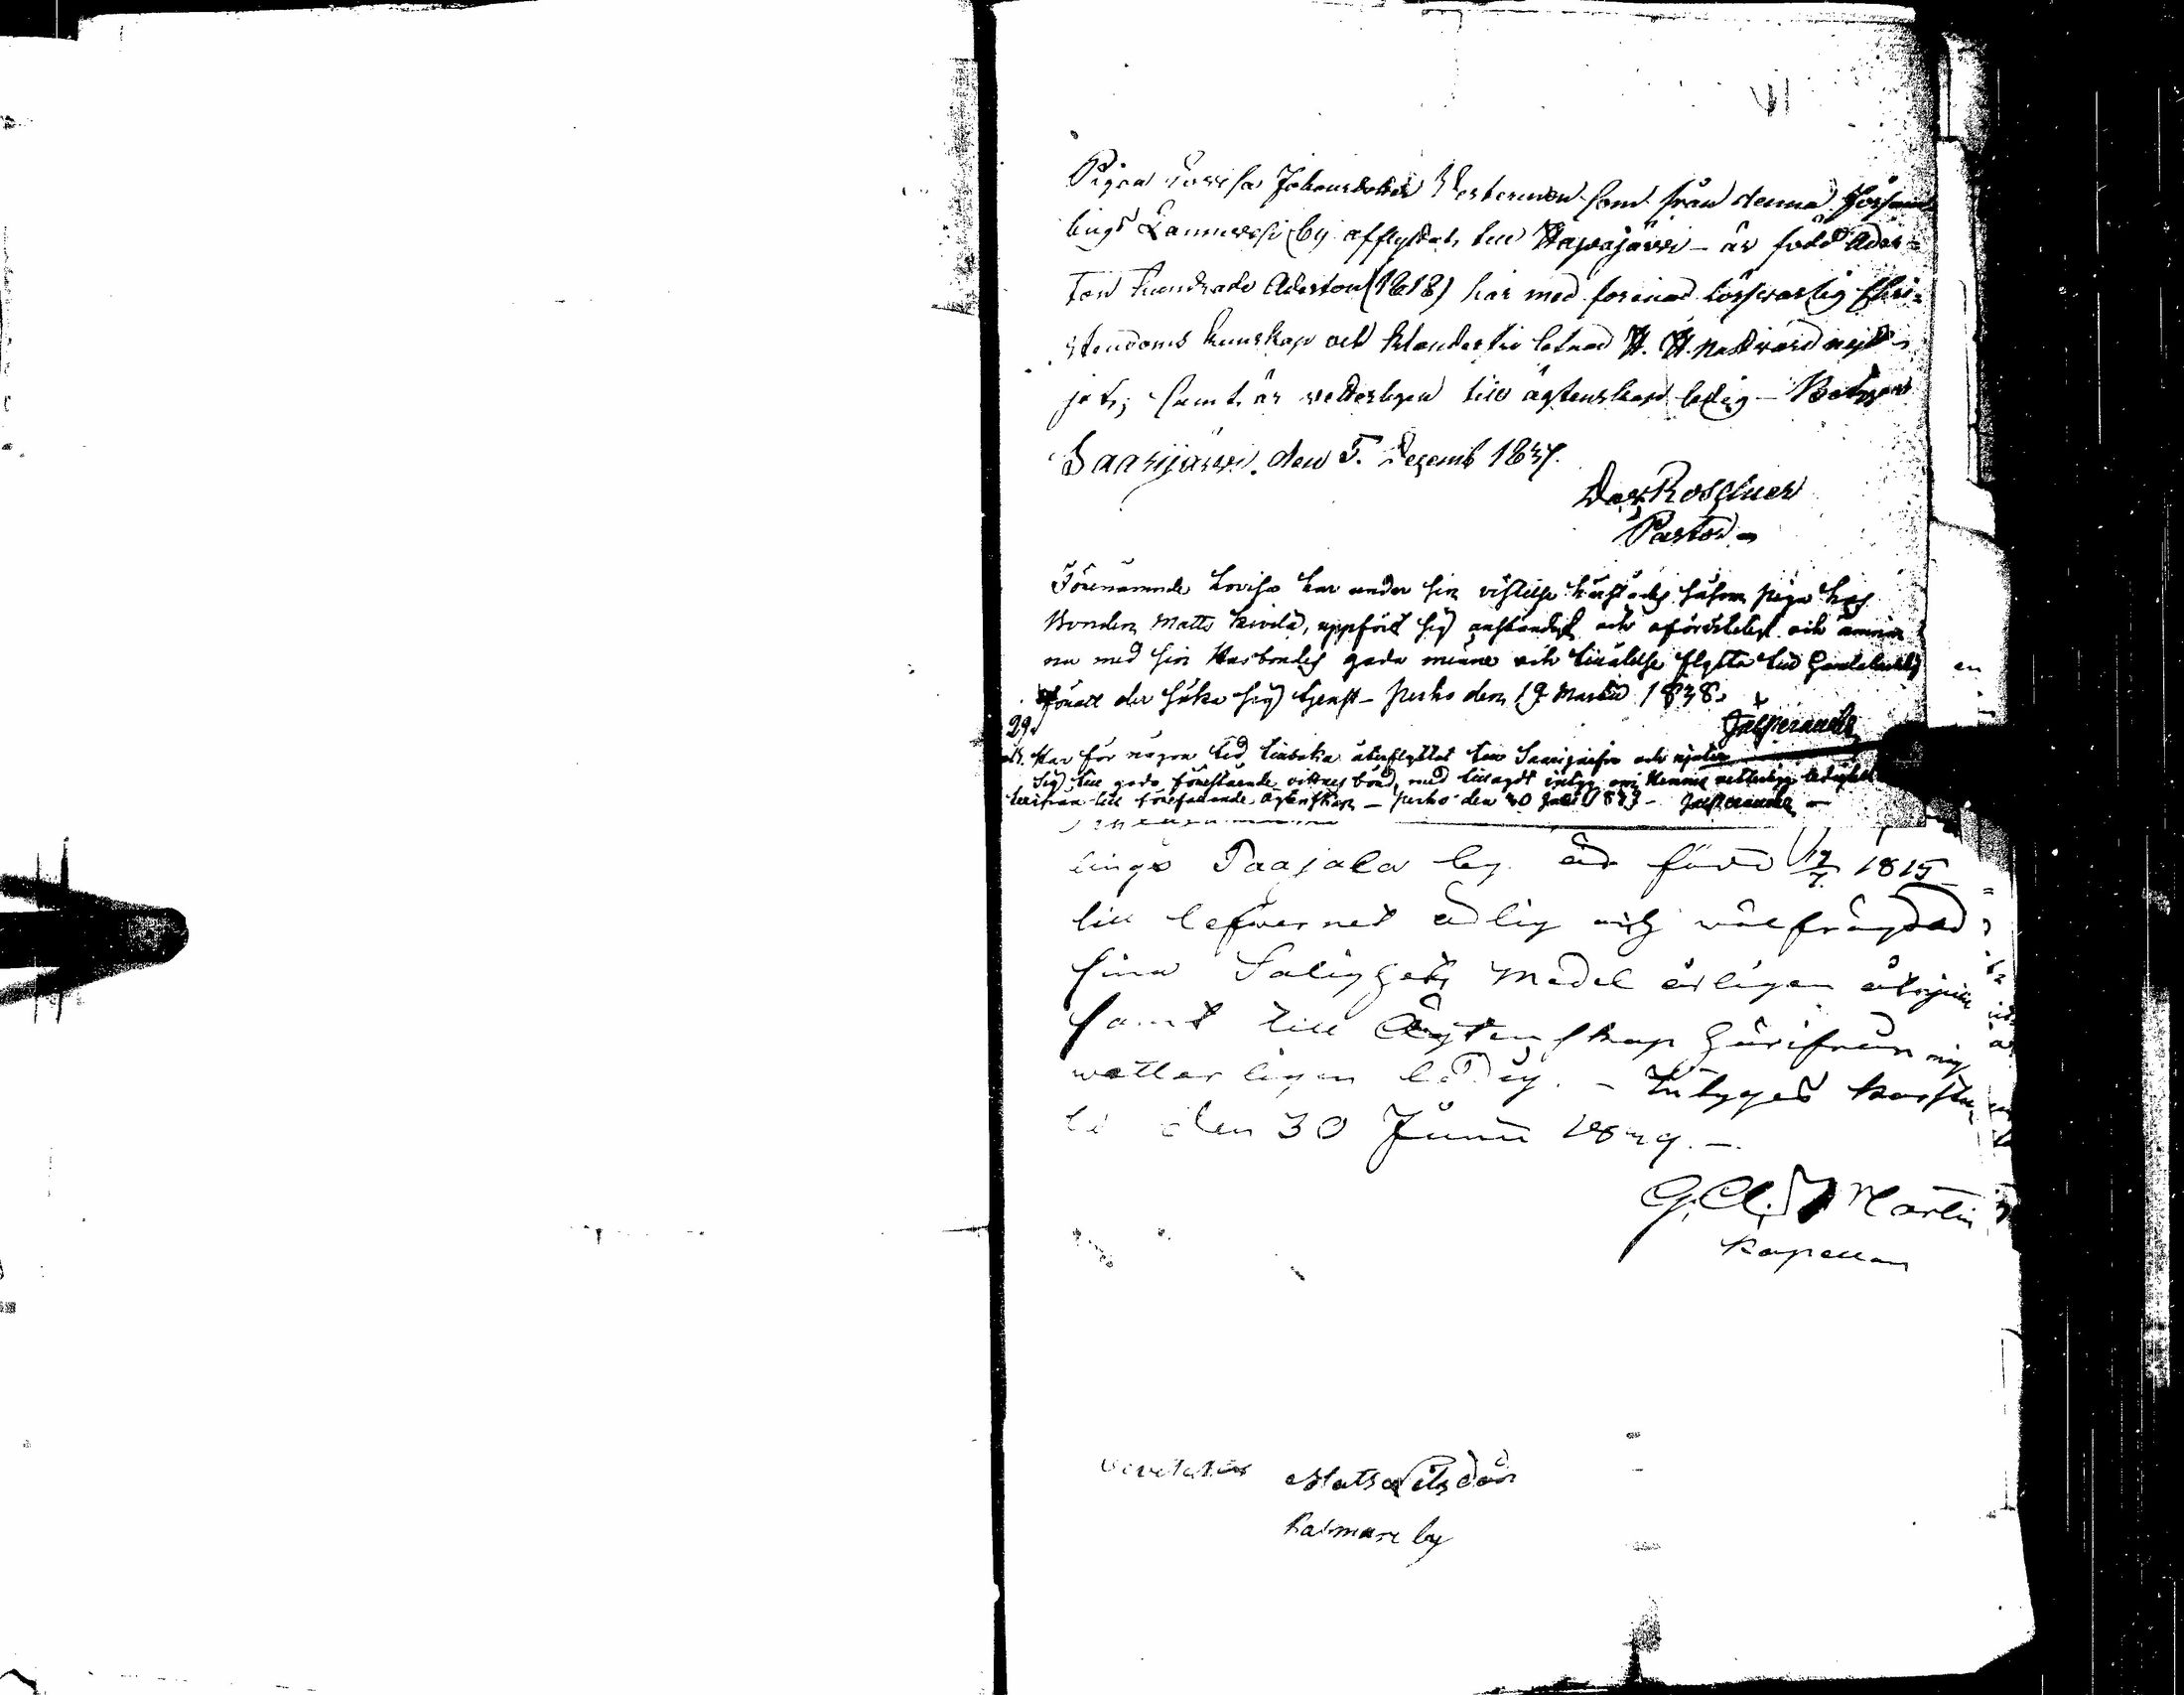 Pigan Lovisa Johansdotter Westerman som från denna Försam
lings Lannevesi by afflyttat till Haapajärvi - är född Ader=
ton hundrade Aderton (1818) har med förenad försvarlig Chri=
stendoms kunskap och klanderfri lefnad H. H. Nattvard nytt-
jat; samt är veterligen till ägtenskap ledig - Betygar
Saarijärvi. den 5. Decemb 1837.
Roschier
Pastor
Förenämnde Lovisa har under sin vistelse härstädes såsom piga hos
Bonden Matts Kivelä, uppfört sig anständigt och oförviteligt och ämnar
nu med sin Husbondes goda minne och tillåtelse flytta till Gamlakarleby
för att der söka sig tjenst - Perho den 19 Martii 1838.
29.
Har för någon tid tillbaka återflyttat till Saarijärvi och
sig till godo förestående vittnesbörd, med tillagdt intyg om Hennes vetterliga ledighet
härifrån till förefallande ägtenskap - Perho den 30
lings Taajala by är född 17/7 1815
till lefvernet ärlig och välfrägdad
sina Salighets Medel årligen
samt till Ägtenskap härifrån
vetterligen ledig. - Intygas Karstu
la den 30 Junii 1849. -
Martin
Kapellan
Matts
Kalmari by